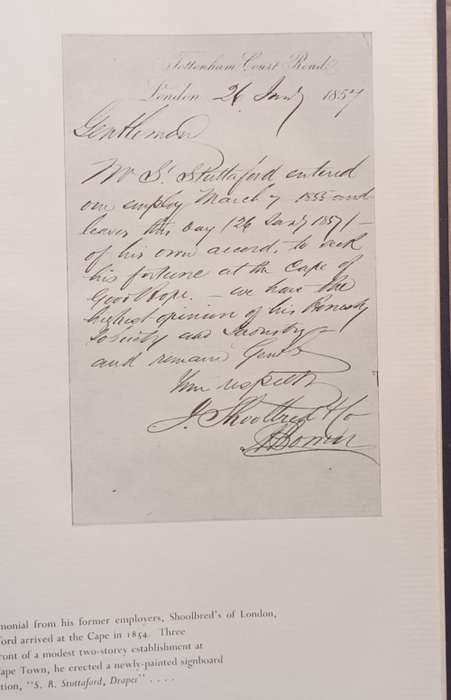 Tottenham Court Road
London 26 Jany 1857
Gentlemen
Mr S. Stuttaford entered
our employ March 7 1855 and
leaves this day (26 Jany 1857) –
of his own accord, to seek
his fortune at the Cape of
Good Hope. – we have the
highest opinion of his Honesty
Sobriety and Industry –
and remain Gents
Your respectfy
J. Shoolbred & Co
monial from his former employers, Shoolbred's of London,
ford arrived at the Cape in 1854. Three
ront of a modest two-storey establishment at
ape Town, he erected a newly-painted signboard
tion, "S. R. Stuttaford, Draper" . . . .